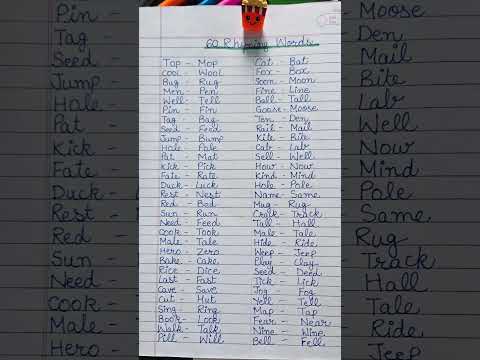 60 Rhyming Words
Top - Mop
Cool - Wool
Bug - Rug
Men - Pen
Well - Tell
Pin - Fin
Tag - Bag
Seed - Feed
Jump - Bump
Hole - Pole
Pat - Mat
Kick - Pick
Fate - Rate
Duck - Luck
Rest - Nest
Red - Bed
Sun - Run
Need - Feed
Cook - Took
Male - Tale
Hero - Zero
Bake - Cake
Rice - Dice
Last - Fast
Cave - Save
Cut - Hut
Sing - Ring
Book - Look
Walk - Talk
Pill - Will
Cat - Bat
Fox - Box
Soon - Moon
Fine - Line
Ball - Tall
Goose - Moose
Ten - Den
Rail - Mail
Kite - Bite
Cab - Lab
Sell - Well
How - Now
Kind - Mind
Hole - Pole
Name - Same
Mug - Rug
Crack - Track
Tall - Hall
Male - Tale
Hide - Ride
Weep - Jeep
Play - Clay
Seed - Deed
Tick - Lick
Jog - Fog
Yell - Tell
Map - Tap
Fear - Near
Nine - Wine
Bell - Fell
Pin -
Tag -
Seed -
Jump -
Hole -
Pat -
Kick -
Fate -
Duck -
Rest -
Red -
Sun -
Need -
Cook -
Male -
Hero -
Moose
Den
Mail
Bite
Lab
Well
Now
Mind
Pole
Same
Rug
Track
Hall
Tale
Ride
Jeep